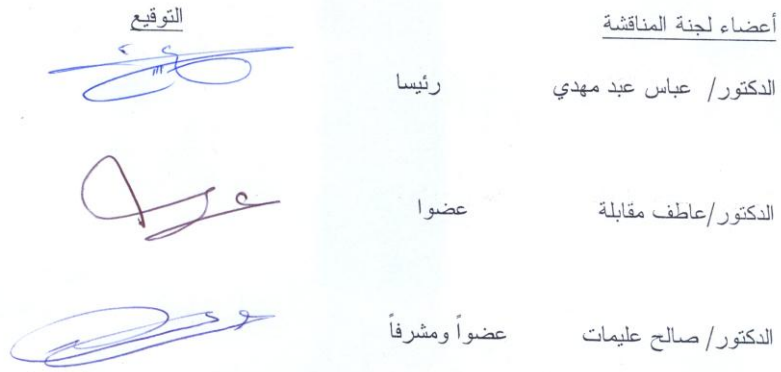 أعضاء لجنة المناقشة التوقيع
الدكتور/ عباس عبد مهدي رئيسا
الدكتور/عاطف مقابلة عضوا
الدكتور/ صالح عليمات عضواً ومشرفاً